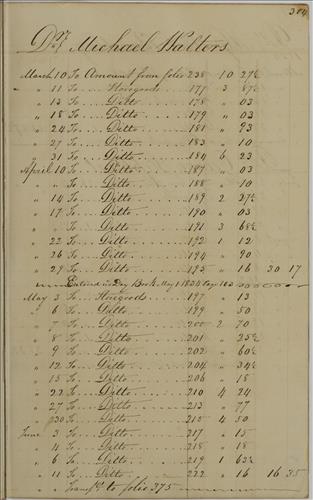 304
Dr Michael Walters
March 10 To Amount from folio 238 10 27½
" 11 To Storegoods 177 3 87½
" 13 To Ditto 178 " 03
" 18 To Ditto 179 " 03
" 24 To Ditto 181 " 93
" 27 To Ditto 183 " 10
" 31 To Ditto 184 6 23
April 10 To Ditto 187 " 03
" " To Ditto 188 " 10
" 14 To Ditto 189 2 37½
" 17 To Ditto 190 " 03
" " To Ditto 191 3 68½
" 22 To Ditto 192 1 12
" 26 To Ditto 194 " 90
" 29 To Ditto 195 " 16 30 17
Entered in Day Book May 1 1834 page 103
May 3 To Storegoods 197 " 13
" 6 To Ditto 199 " 50
" 7 To Ditto 200 2 70
" 8 To Ditto 201 " 25½
" 9 To Ditto 202 " 60½
" 12 To Ditto 204 " 34½
" 15 To Ditto 206 " 18
" 22 To Ditto 210 4 24
" 27 To Ditto 213 " 77
" 30 To Ditto 215 4 50
June 3 To Ditto 217 " 15
" 4 To Ditto 218 " 18
" 6 To Ditto 219 1 63½
" 11 To Ditto 222 " 16 16 35
Transfd to folio 375